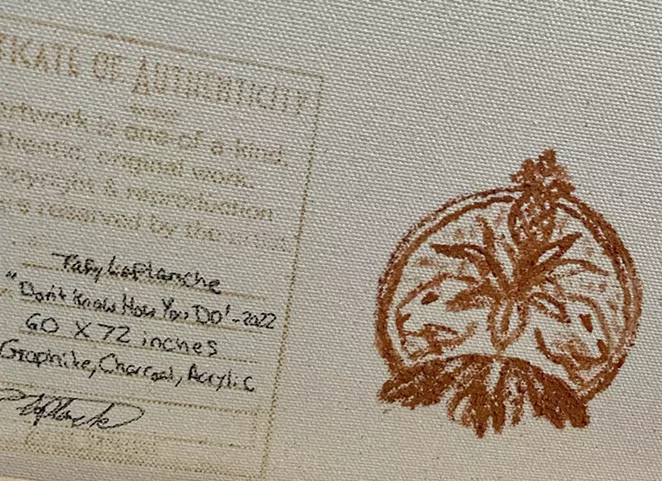 TICATE OF AUTHENTICITY
artwork is one of a kind
thentic, original work.
opyright & reproduction
s reserved by the
Tafy LaPlanche
"Don't Know How You DO'-2022
60 X 72 inches
Graphite, Charcoal, Acrylic